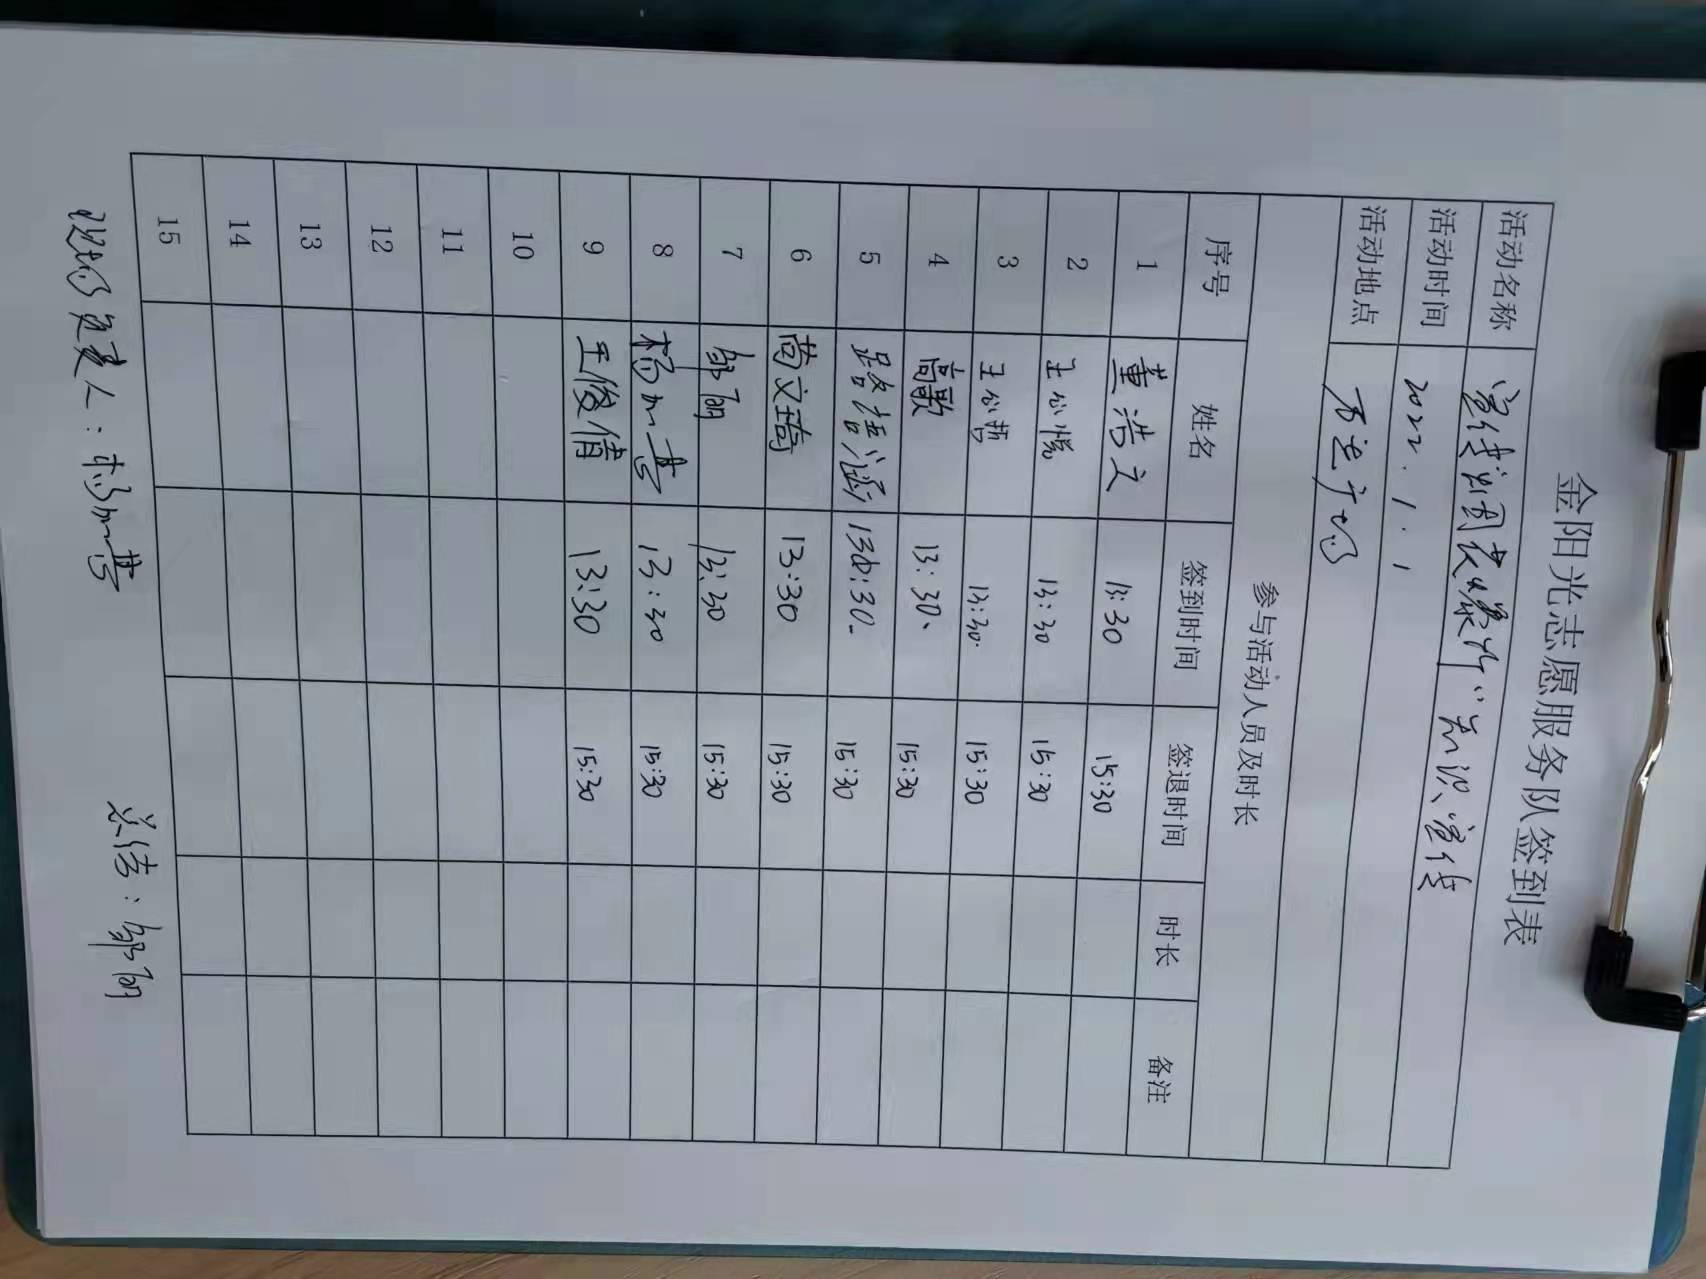 金阳光志愿服务队签到表
活动名称 宣传烟花爆竹知识宣传
活动时间 2022.1.1
活动地点 万达广场
参与活动人员及时长
序号 姓名 签到时间 签退时间 时长 备注
1 董浩文 13:30 15:30
2 王心悦 13:30 15:30
3 王心哲 13:30. 15:30
4 高歌 13:30、 15:30
5 路梧涵 13:30- 15:30
6 苘文琦 13:30 15:30
7 邹丽 13:30 15:30
8 13:30 15:30
9 王俊倩 13:30 15:30
10
11
12
13
14
15
现场负责人:
总结:邹丽